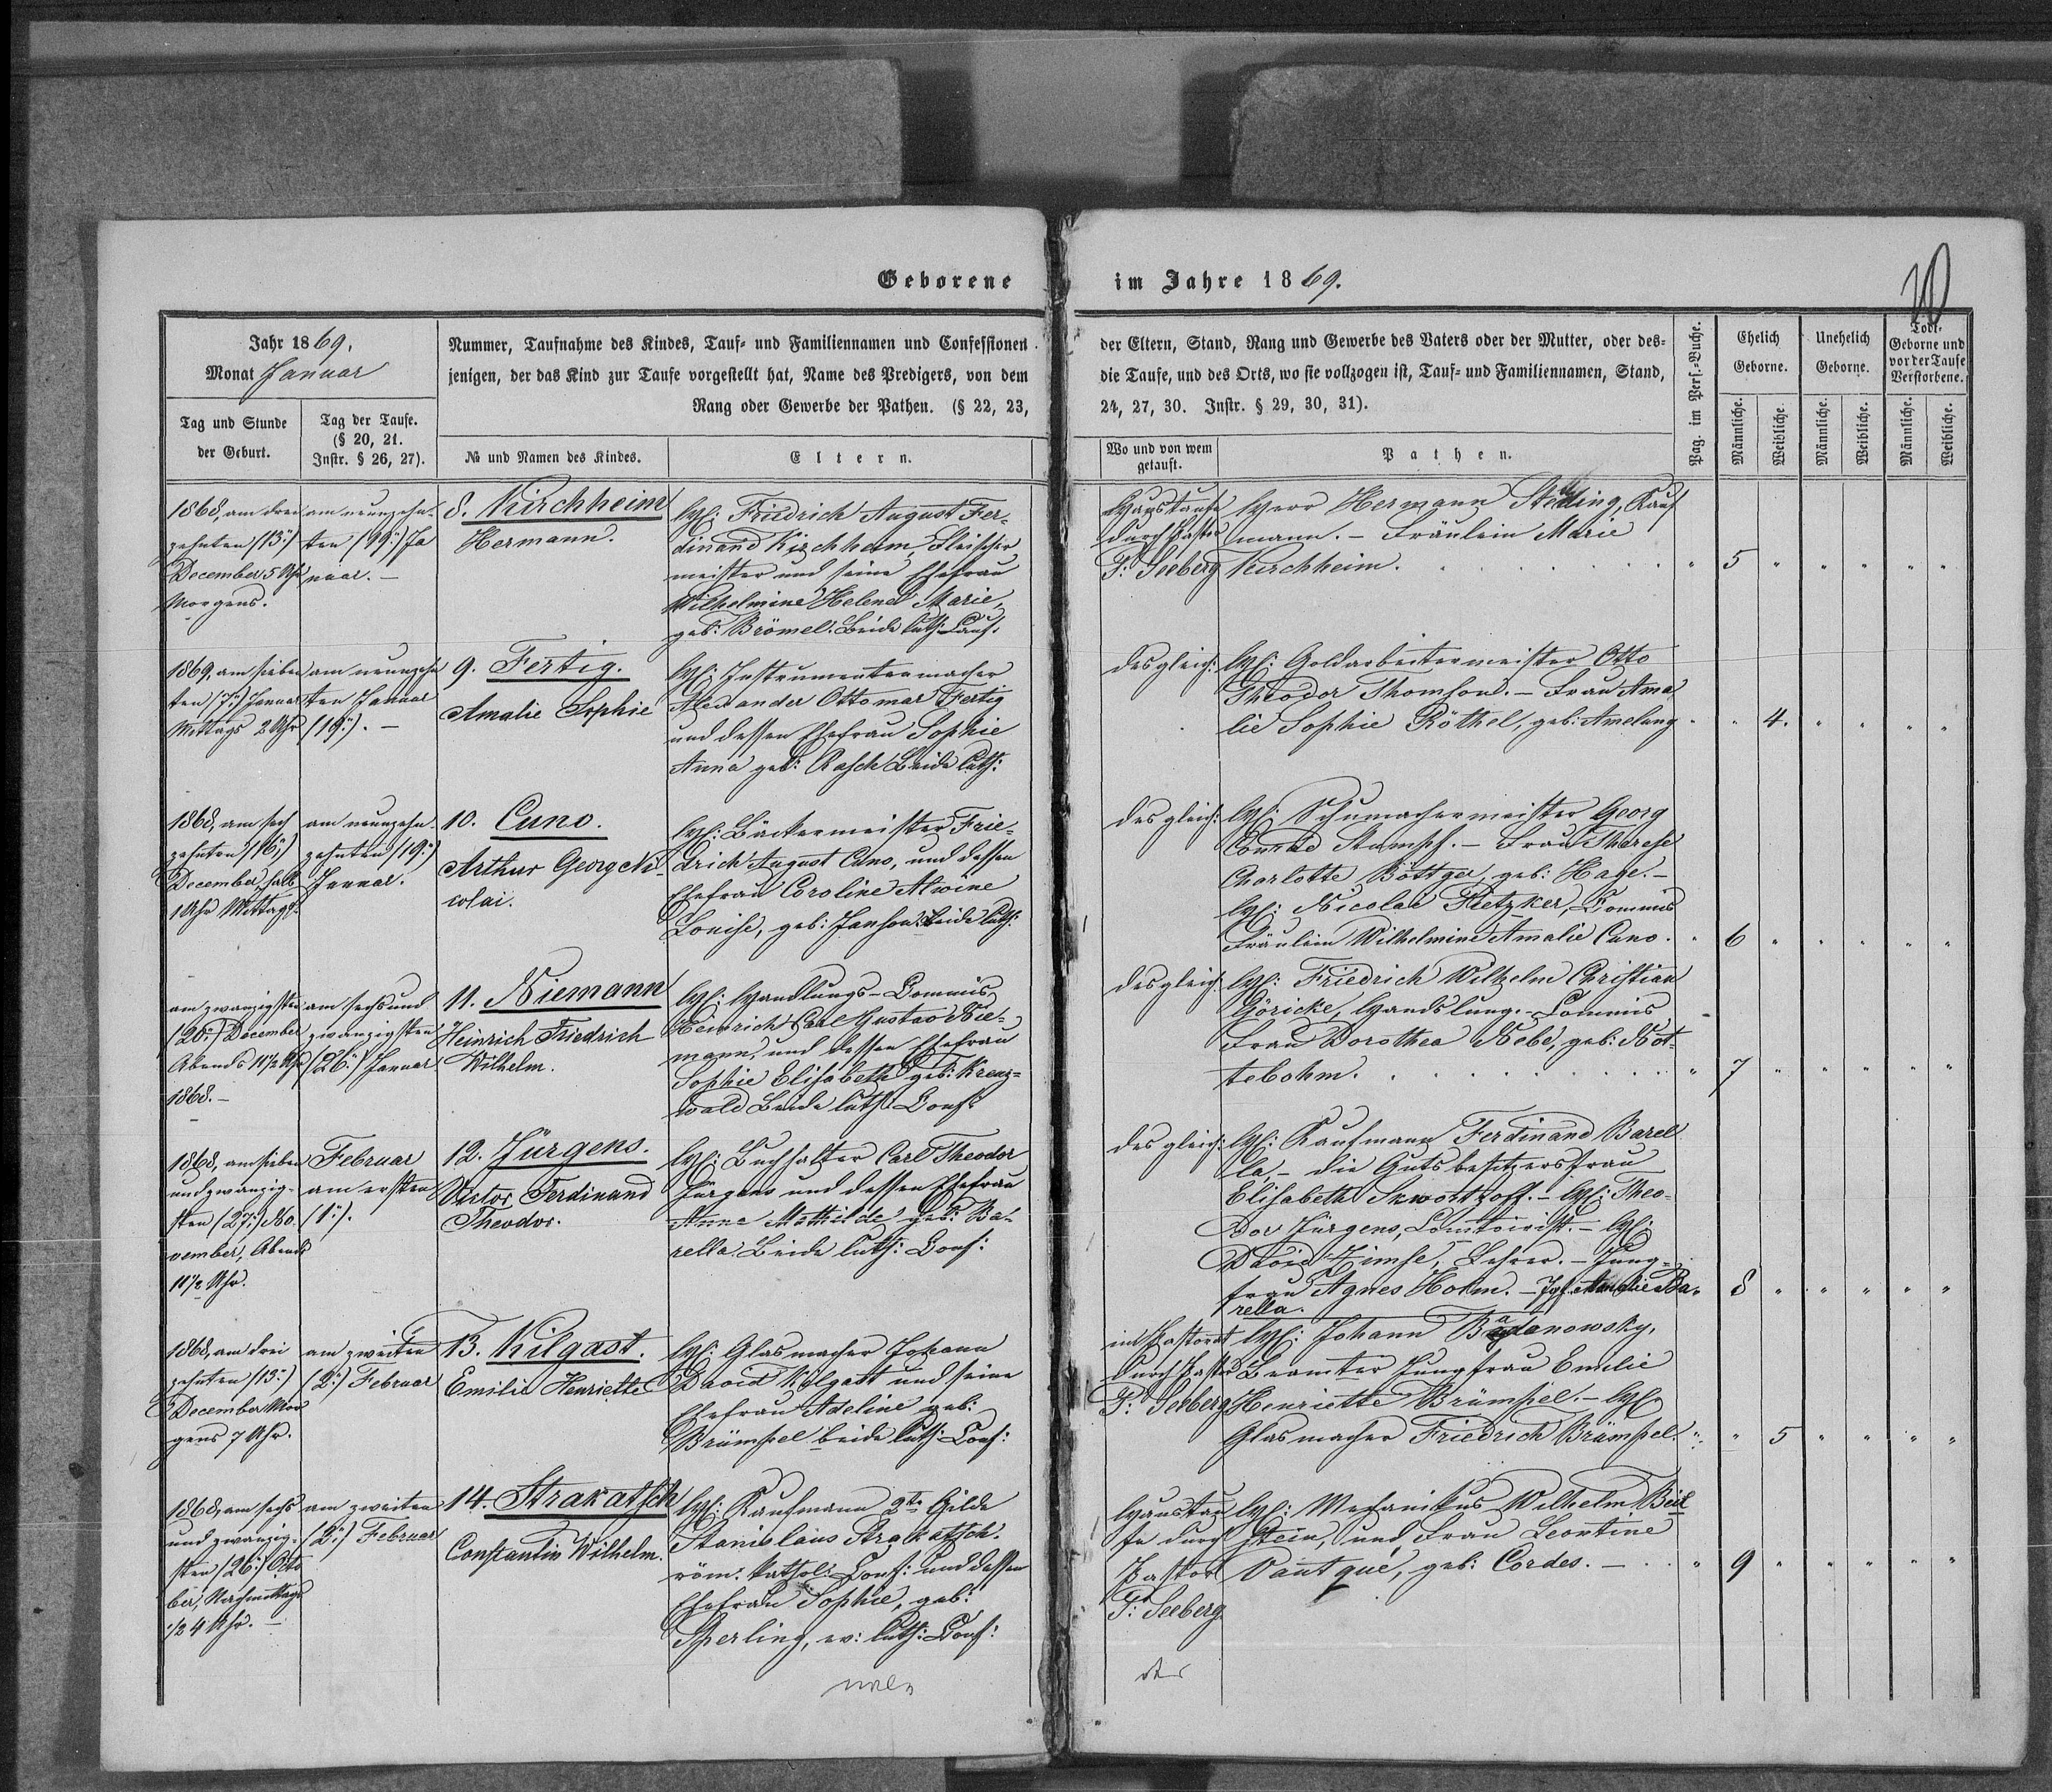 Geborene im Jahre 1869.
10
Jahr 1869.
Monat Januar
Tag und Stunde
der Geburt.
Tag der Taufe.
(§ 20, 21.
Instr. § 26, 27).
Nummer, Taufnahme des Kindes, Tauf- und Familiennamen und Confessionen
jenigen, der das Kind zur Taufe vorgestellt hat, Name des Predigers, von dem
Rang oder Gewerbe der Pathen. (§ 22, 23,
№ und Namen des Kindes.
Eltern.
der Eltern, Stand, Rang und Gewerbe des Vaters oder der Mutter, oder des-
die Taufe, und des Orts, wo sie vollzogen ist, Tauf- und Familiennamen, Stand,
24, 27, 30. Instr. § 29, 30, 31).
Wo und von wem
getauft.
Pathen.
Pag. im Pers.-Buche.
Ehelich
Geborne.
Unehelich
Geborne.
Todt-
Geborne und
vor der Taufe
Verstorbene.
Männliche.
Weibliche.
Männliche.
Weibliche.
Männliche.
Weibliche.
1868, am drei
zehnten (13:)
December 5 Uhr
Morgens.
am neunzehn-
ten (19:) Ja
nuar. –
8. Kirchheim
Hermann.
Friedrich August Fer-
dinand Kirchheim, Fleischer
meister und seine Ehefrau
Wilhelmine Helene Marie,
geb: Brömel. Beide luth: Conf:
Haustaufe
durch Pastor
P: Seeberg
Herr Hermann Steding, Kauf
mann. – Fräulein Marie
Kirchheim.
5
1869, am sieben
ten (7:) Januar
Mittags 2 Uhr
am neunzehn
ten Januar
(19:). –
9. Fertig.
Amalie Sophie
Instrumentenmacher
Alexander Ottomar Fertig
und dessen Ehefrau Sophie
Anna geb: Rasch Beide luth:
desgleich:
Goldarbeitermeister Otto
Theodor Thomson. – Frau Ama
lie Sophie Röthel, geb: Amelung
4.
1868, am sech
zehnten (16:)
December, halb
1 Uhr Mittags.
am neunzehn-
zehnten (19:)
Januar.
10. Cuno.
Arthur Georg Ni-
colai.
Bäckermeister Frie-
drich August Cuno, und dessen
Ehefrau Caroline Alwine
Louise, geb: Janson Beide luth:
desgleich:
Schumachermeister Georg
Conrad Stumpf. – Frau Therese
Charlotte Böttger, geb: Hage. –
Nicolai Fietzker, Commis
Fräulein Wilhelmine Amalie Cuno.
6
am zwanzigsten
(20:) December
Abends 11½ Uhr
1868. –
am sechsund
zwanzigsten
(26:) Januar
11. Niemann
Heinrich Friedrich
Wilhelm.
Handlungs-Commis
Heinrich Carl Gustav Nie-
mann, und dessen Ehefrau
Sophie Elisabeth geb: Kreuz-
wald Beide luth: Conf:
desgleich:
Friedrich Wilhelm Christian
Göricke, Handlung.-Commis
Frau Dorothea Nebe, geb: Not-
tebohm.
7
1868, am sieben
undzwanzig-
sten (27:) No-
vember, Abends
11½ Uhr.
Februar
am ersten
(1:).
12. Jürgens.
Victor Ferdinand
Theodor.
Buchhalter Carl Theodor
Jürgens und dessen Ehefrau
Anna Mathilde geb: Ba-
rella. Beide luth: Conf:
desgleich:
Kaufmann Ferdinand Barel
la, – die Gutsbesitzersfrau
Elisabeth Skwortzoff. – Theo-
dor Jürgens, Comtoirist. –
David Zimse, Lehrer. – Jung-
frau Agnes Holm. – Jgf. Amalie Ba-
rella.
8
1868, am drei
zehnten (13:)
December Mor
gens 7 Uhr.
am zweiten
(2:) Februar
13. Kilgast.
Emilie Henriette
Glasmacher Johann
David Kilgast und seine
Ehefrau Adeline geb:
Brümpel beide luth: Conf:
im Pastorat
durch Pastor
P: Seeberg
Johann Bagdanowsky,
Beamter Jungfrau Emilie
Henriette Brümpel. –
Glasmacher Friedrich Brümpel.
5
1868, am sechs
und zwanzig-
sten (26:) Octo
ber, Nachmittags
½ 4 Uhr. –
am zweiten
(2:) Februar
14. Strakatsch
Constantin Wilhelm.
Kaufmann 2te Gilde
Stanislaus Strakatsch.
röm: kathol: Conf: und dessen
Ehefrau Sophie, geb:
Sperling, ev: luth: Conf:
Haustau
fe durch
Pastor
P: Seeberg
Mechanikus Wilhelm Beil
stein, und Frau Leontine
Vautqué, geb: Cordes. –
9